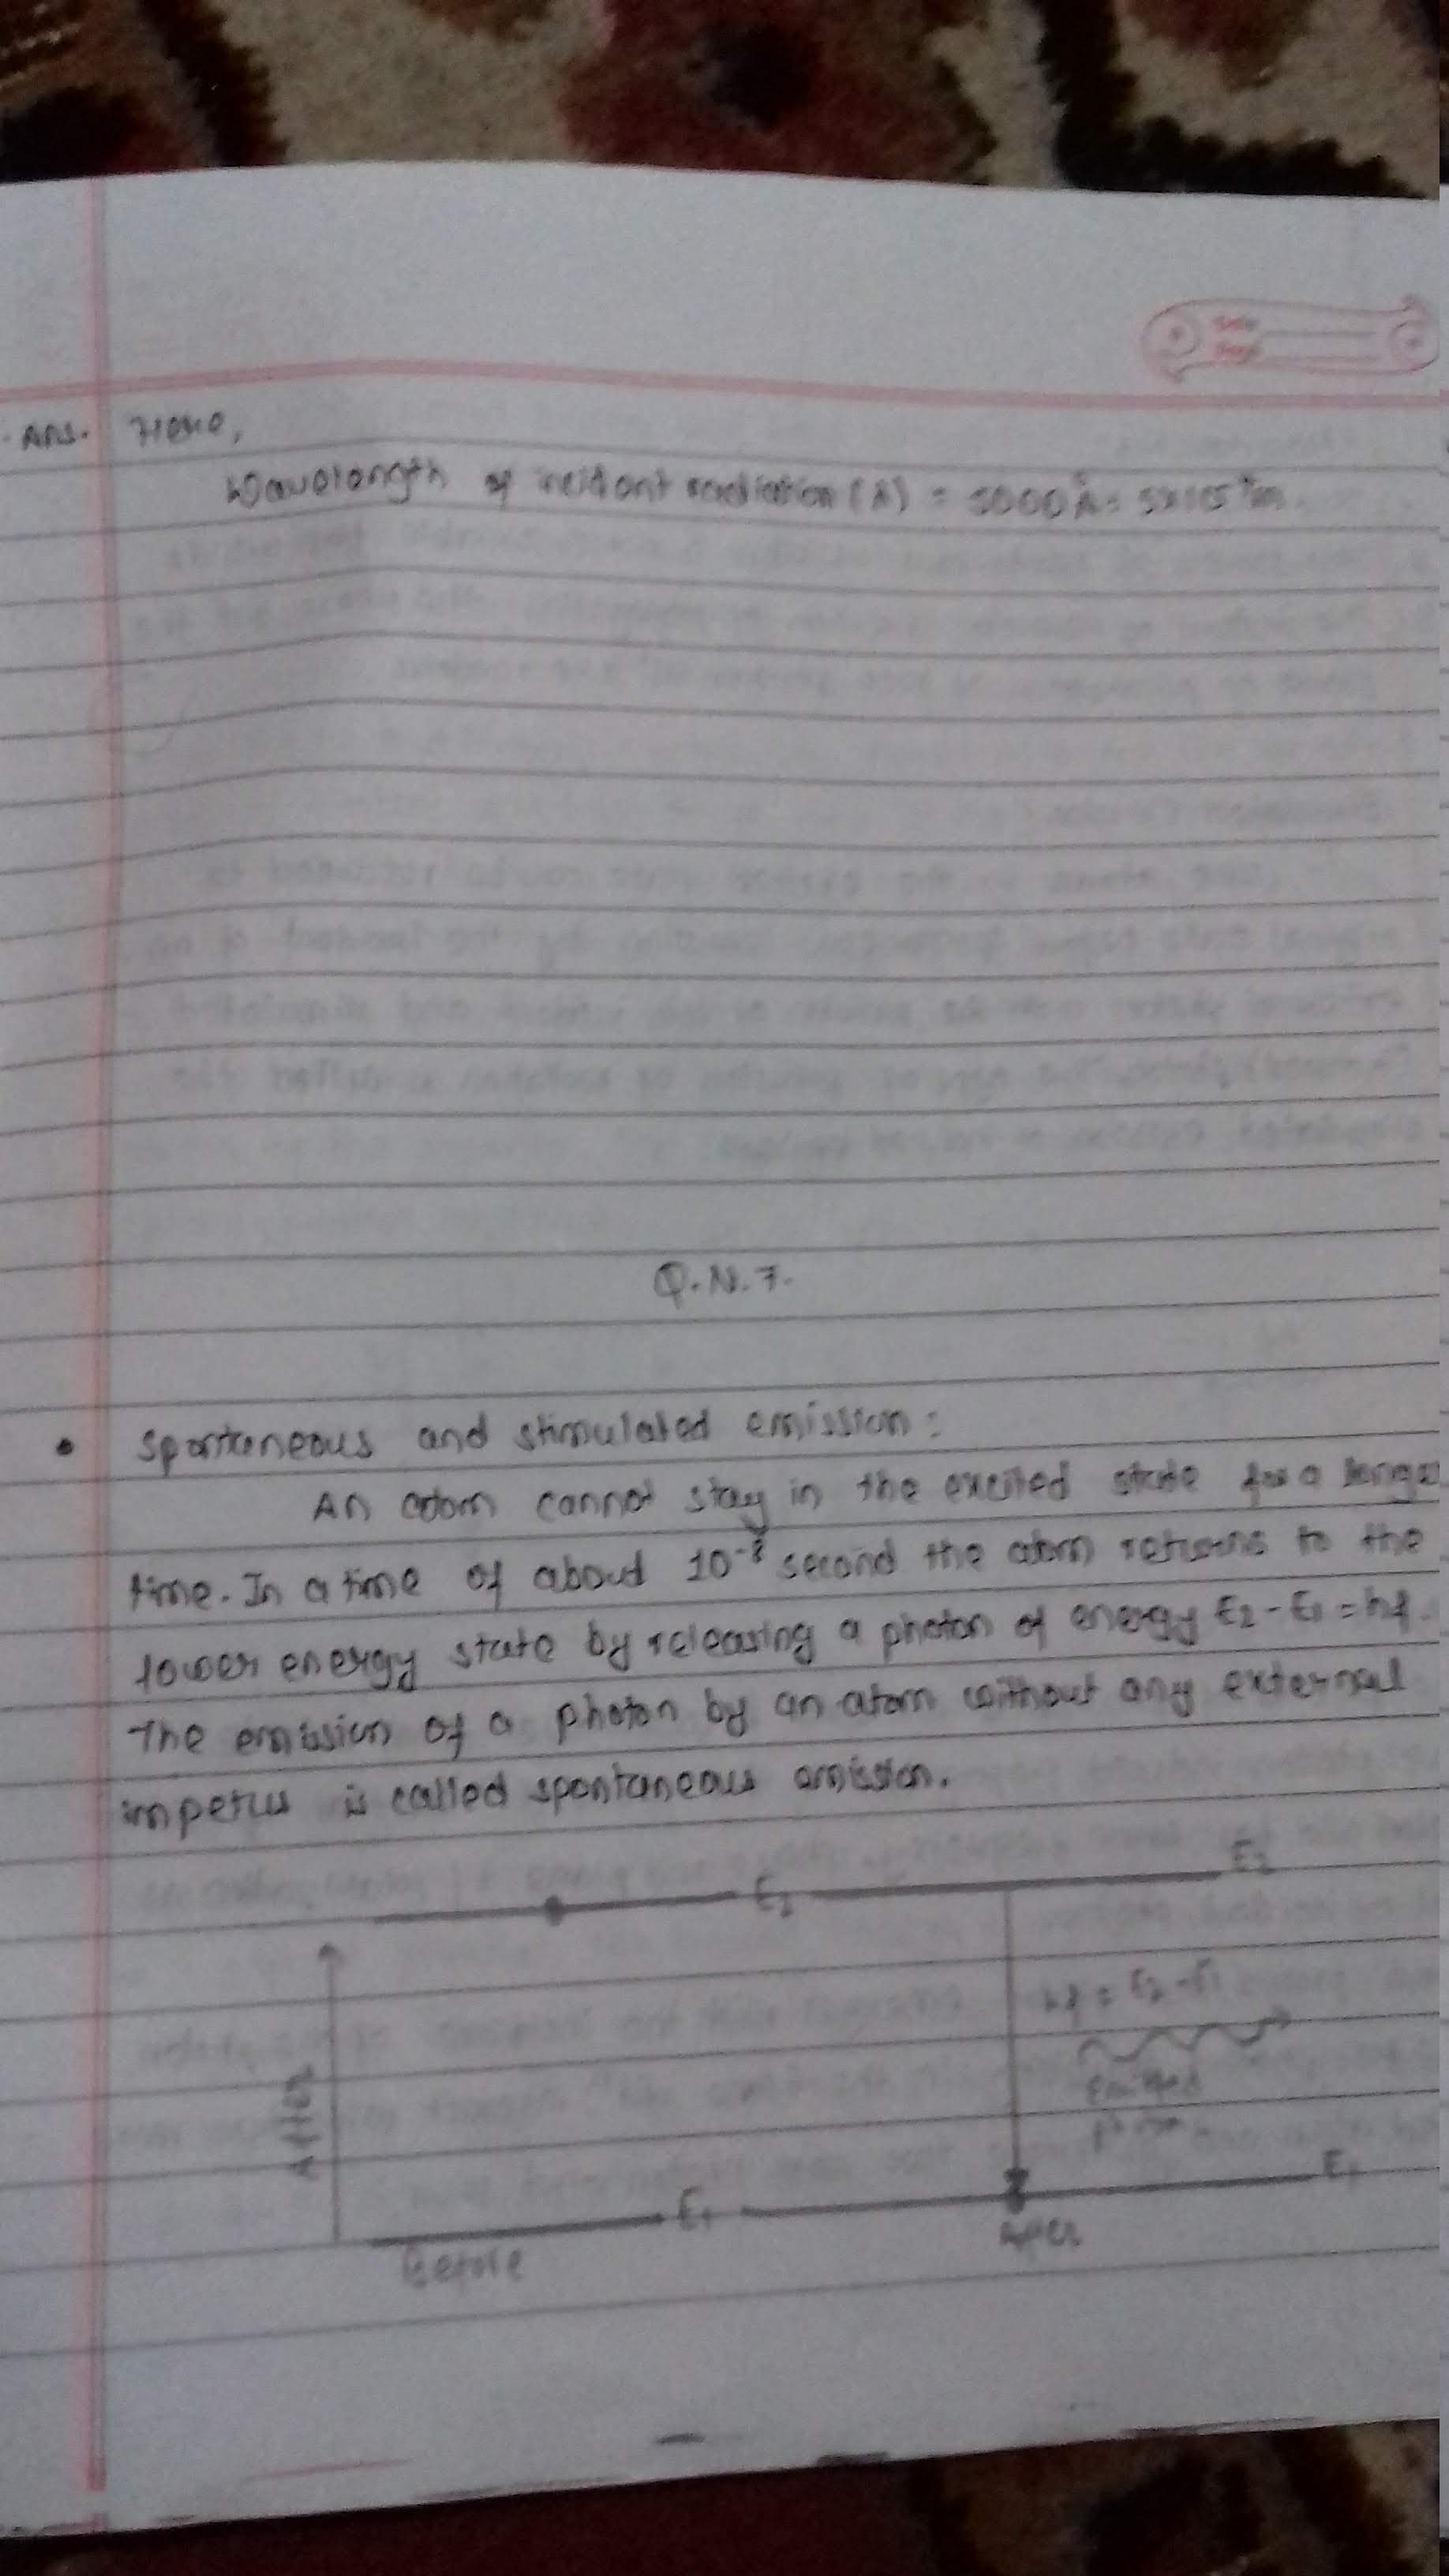 Ans. Here,
Wavelength of incident radiation (λ) = 5000 Å = 5×10⁻⁷m.
Q.N.7.
• Spontaneous and stimulated emission:
An atom cannot stay in the excited state for a longer
time. In a time of about 10⁻⁸ second the atom returns to the
lower energy state by releasing a photon of energy E₂-E₁ = hf.
The emission of a photon by an atom without any external
impetus is called spontaneous emission.
E₂ E₂
hf = E₂-E₁
After
Emitted
photon
E₁ E₁
Before After